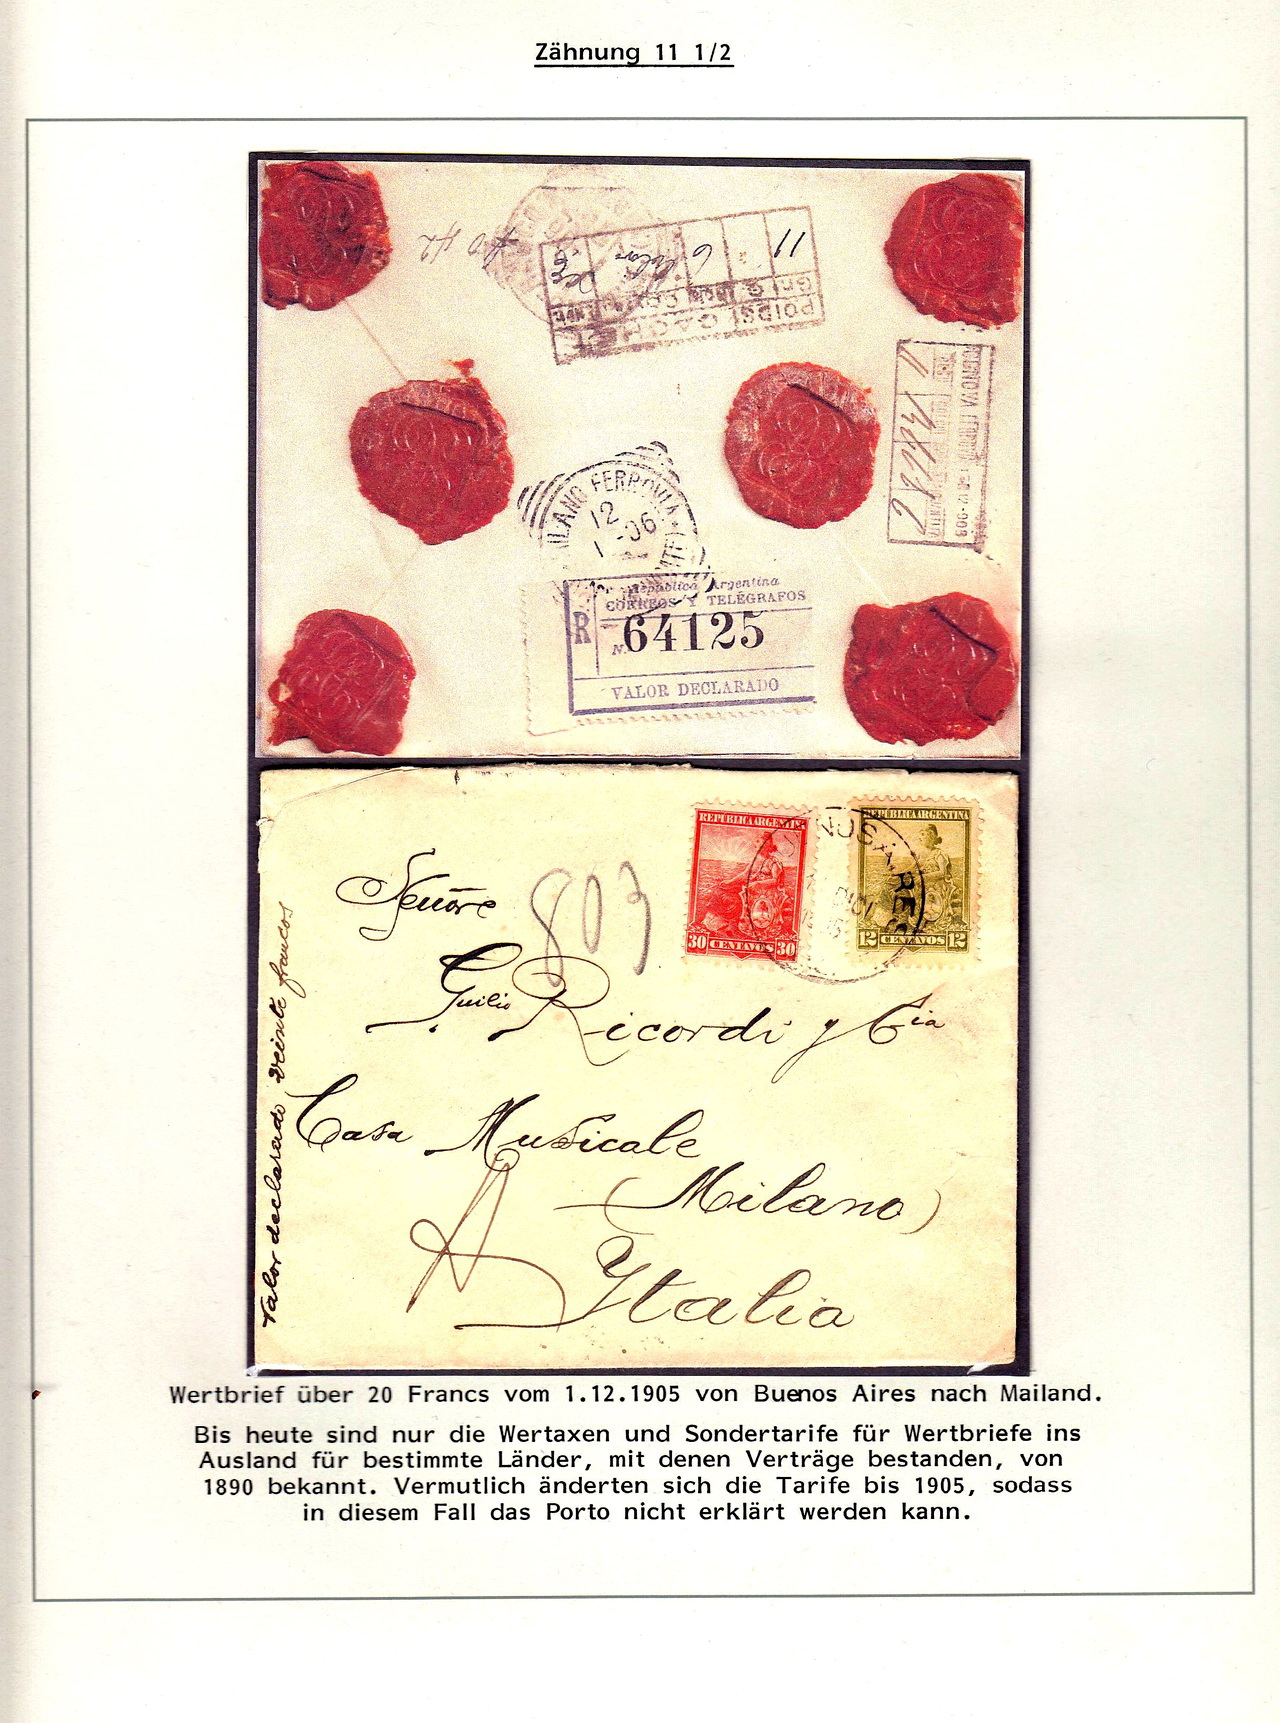 Zähnung 11 1/2
11
6
POIDS
CACH
MILANO FERROVIA
12
1-06
República Argentina
CORREOS Y TELÉGRAFOS
R
N. 64125
VALOR DECLARADO
REPUBLICA ARGENTINA
30 CENTAVOS 30
REPUBLICA ARGENTINA
12 CENTAVOS 12
BUENOS AIRES
803
Señore
Guilio Ricordi y Cia
Casa Musicale
(Milano)
Italia
Valor declarado veinte francos
Wertbrief über 20 Francs vom 1.12.1905 von Buenos Aires nach Mailand.
Bis heute sind nur die Wertaxen und Sondertarife für Wertbriefe ins
Ausland für bestimmte Länder, mit denen Verträge bestanden, von
1890 bekannt. Vermutlich änderten sich die Tarife bis 1905, sodass
in diesem Fall das Porto nicht erklärt werden kann.